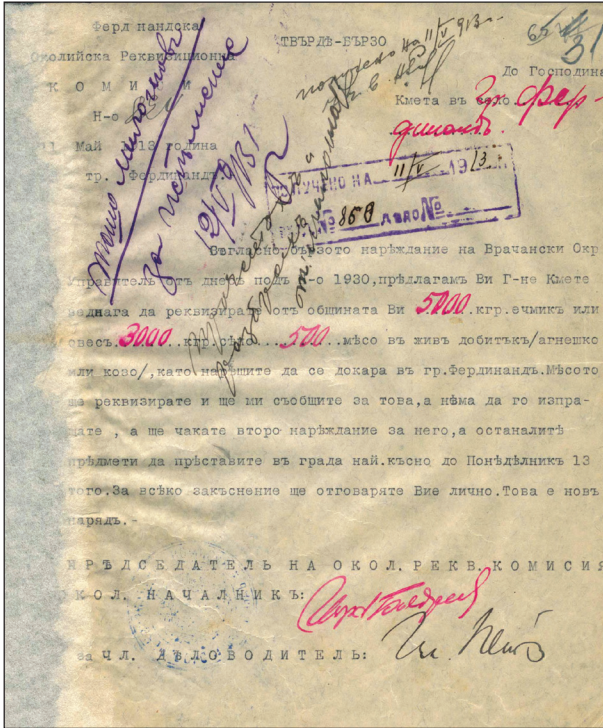 Ферд нандска
ТВЪРДѢ-БЪРЗО
Околийска Реквизиционна
К О М И И
До Господина
Кмета въ село гр. Фер-
динандъ.
Н-о
Май 13 година
гр. Фердинандъ
получено на 11/V 913
за исполнение
12/V 913
ПОЛУЧЕНО НА 11/V 1913
№ 858 АВЮ №
Съгласно бързото нарѣждание на Врачански Окр
Управитель отъ днесъ подъ Н-о 1930, прѣдлагамъ Ви Г-не Кмете
веднага да реквизирате отъ общината Ви 5000 кгр.ечмикъ или
овесъ. 3000 ..кгр.сѣно 500 ..мѣсо въ живъ добитъкъ/агнешко
или ково/,като нарѣдите да се докара въ гр.Фердинандъ.Мѣсото
ще реквизирате и ще ми съобщите за това,а нѣма да го изпра-
щате , а ще чакате второ нарѣждание за него,а останалитѣ
прѣдмети да прѣставите въ града най.късно до Понѣдѣлникъ 13
того.За всѣко закъснение ще отговаряте Вие лично.Това е новъ
нарядъ.-
ПРѢДСЕДАТЕЛЬ НА ОКОЛ. РЕКВ. КОМИСИЯ
ОКОЛ. НАЧАЛНИКЪ:
за ЧЛ. ДѢЛОВОДИТЕЛЬ: